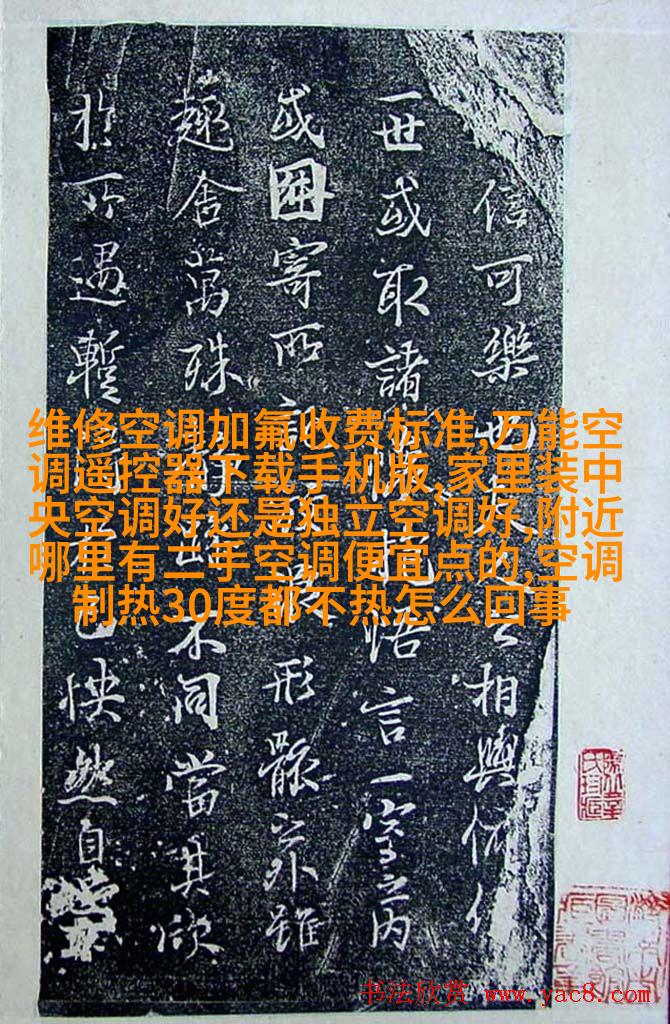 信可樂也夫人之相與俯仰
一世或取諸懷抱悟言一室之內
或因寄所託放浪形骸之外雖
趣舍萬殊靜躁不同當其欣
於所遇暫得於己怏然自
维修空调加氟收费标准,万能空
调遥控器下载手机版,家里装中
央空调好还是独立空调好,附近
哪里有二手空调便宜点的,空调
制热30度都不热怎么回事
书法欣赏 www.yac8.com